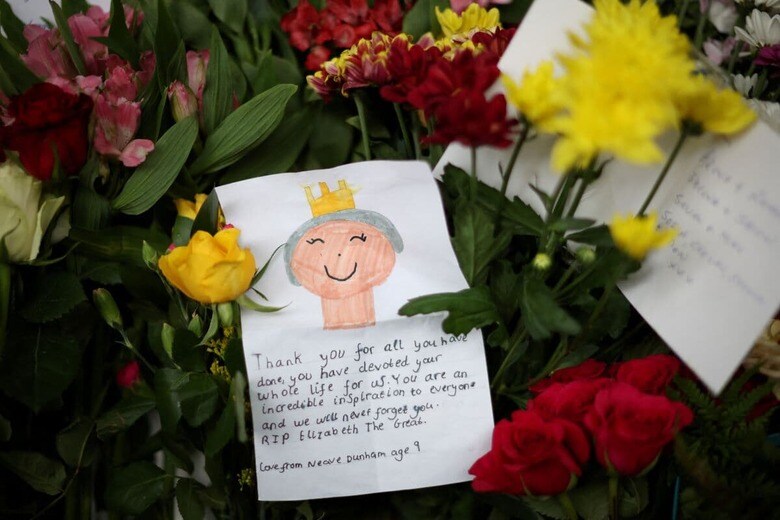 Thank you for all you have
done, you have devoted your
whole life for us. You are an
incredible inspiration to everyone
and we will never forget you.
RIP Elizabeth The Great.
Love from Neave Dunham age 9